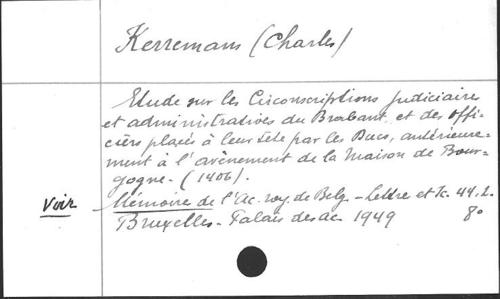 Kerremans (Charles)
Etude sur les Circonscriptions judiciaires
et administratives du Brabant et des offi-
ciers placés à leur tête par les Ducs, antérieure-
ment à l'avènement de la Maison de Bour-
gogne. (1406).
Voir Mémoire de l'Ac. roy. de Belg. - Lettre et 44.2.
Bruxelles - Palais des ac. 1949 8°